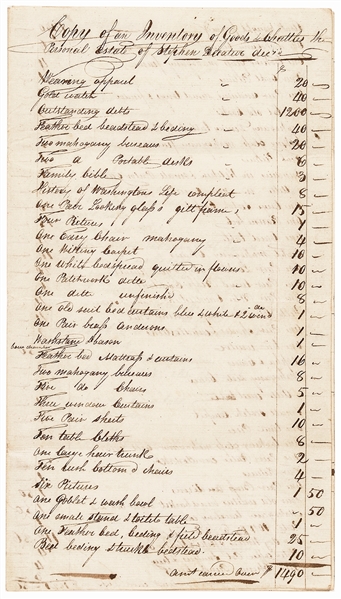 Copy of an Inventory of Goods & Chattles the
Personal Estate of Stephen Decatur decd
$
Wearing apparel " 20 —
Gold watch " 40 —
Outstanding debts 1200 —
Feather bed beadstead & beding " 40 —
Two mahogany bureaus 20 —
Two Portable desks 6 —
Family bible 3 —
History of Washingtons Life compleat 8 —
One Pair Looking glass gilt frames 15 —
Four Pictures
One Easy Chair mahogany 4 —
One Wilting Carpet 10 —
One White bedspread quilted in flowers 10 —
One Patchwork ditto 10 —
One ditto unfinished 8 —
One old suit bed curtains blue & white & 2 window do 1 —
One Pair brass Andirons 1 —
Washstand & bason 1 —
Feather bed Mattrass & curtains 16 —
Two mahogany bureaus 8 —
do Chairs 5 —
Three window Curtains 1 —
Five Pair sheets 10 —
Ten table Cloths 8 —
One large hair trunk 2 —
Ten rush bottom'd chaires 4 —
Six Pictures 1 50
One Goblet & wash bowl " 50
One small stand & toilet table 1 —
One Feather bed, beding & field beadstead 25 —
Bed beding & trunkle bedstead 10 —
amt carried over $ 1490 —